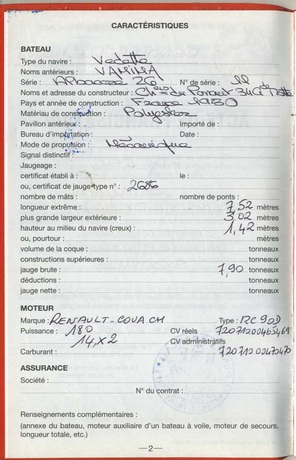 CARACTÉRISTIQUES
BATEAU
Type du navire : Vedette
Noms antérieurs : VANILLA
Série : 26 N° de série : 11
Noms et adresse du constructeur : du
Pays et année de construction : France 1980
Matériau de construction : Polyester
Pavillon antérieur : Importé de :
Bureau d'importation : Date :
Mode de propulsion : Mécanique
Signal distinctif :
Jaugeage :
certificat établi à : le :
ou, certificat de jauge-type n° : 2686
nombre de mâts : nombre de ponts :
longueur extrême : 7,52 mètres
plus grande largeur extérieure : 3,02 mètres
hauteur au milieu du navire (creux) : 1,42 mètres
ou, pourtour : mètres
volume de la coque : tonneaux
constructions supérieures : tonneaux
jauge brute : 7,90 tonneaux
déductions : tonneaux
jauge nette : tonneaux
MOTEUR
Marque : RENAULT-COUACH Type : RC 90D
Puissance : 180 CV réels
14 x 2 CV administratifs
Carburant :
ASSURANCE
Société :
N° du contrat :
Renseignements complémentaires :
(annexe du bateau, moteur auxiliaire d'un bateau à voile, moteur de secours,
longueur totale, etc.)
—2—